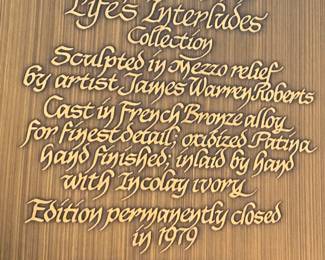 Life's Interludes
Collection
Sculpted in Mezzo relief
by artist James Warren Roberts
Cast in French Bronze alloy
for finest detail; oxidized Patina
hand finished; inlaid by hand
with Incolay ivory
Edition permanently closed
in 1979